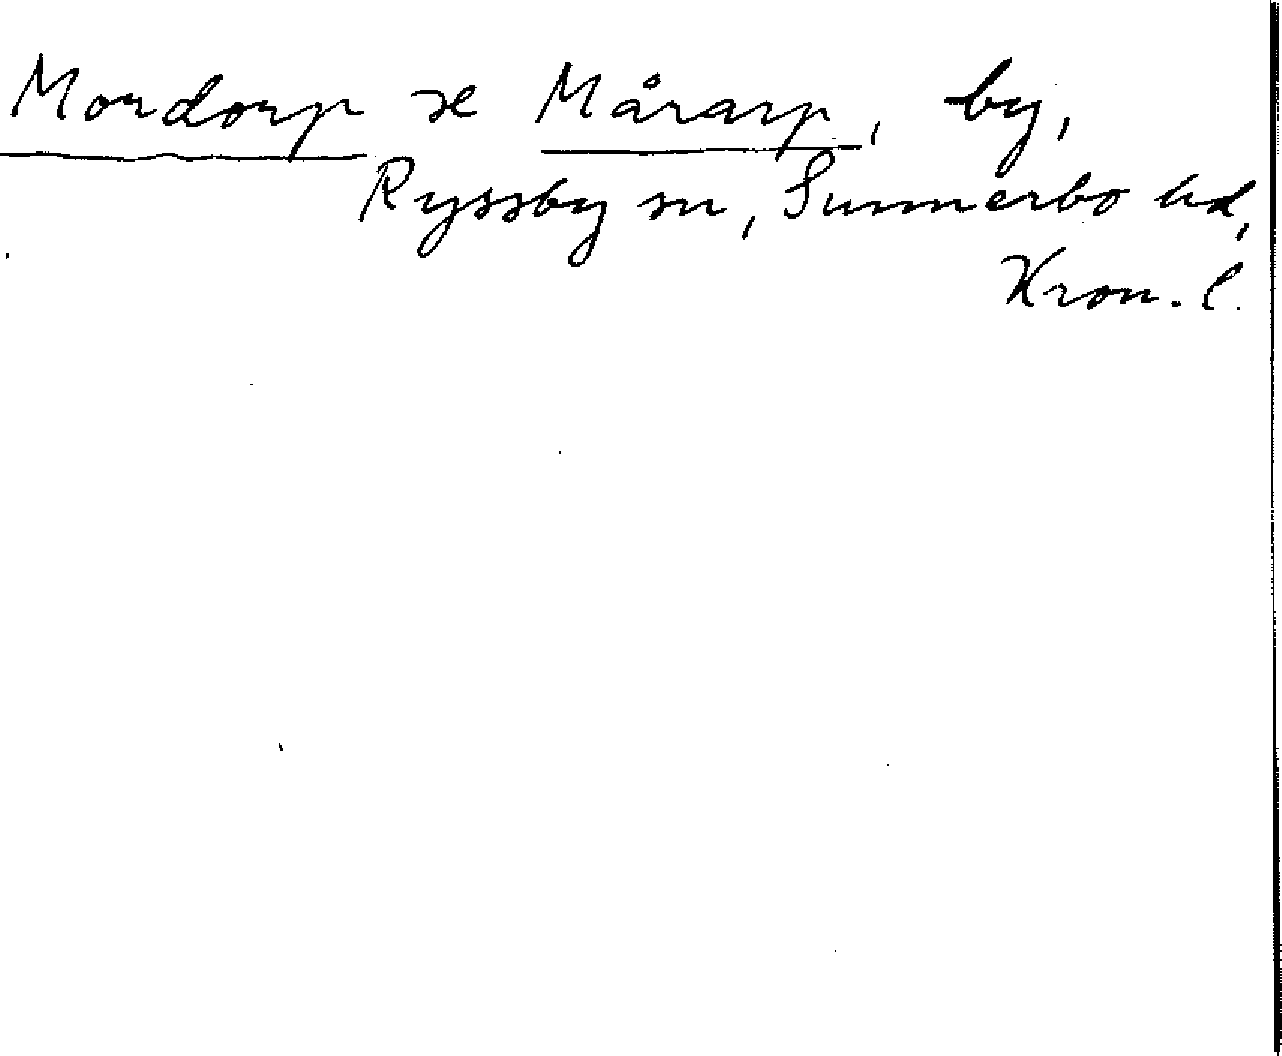 Mordorp se Mårarp, by,
Ryssby sn, Sunnerbo hd,
Kron. l.